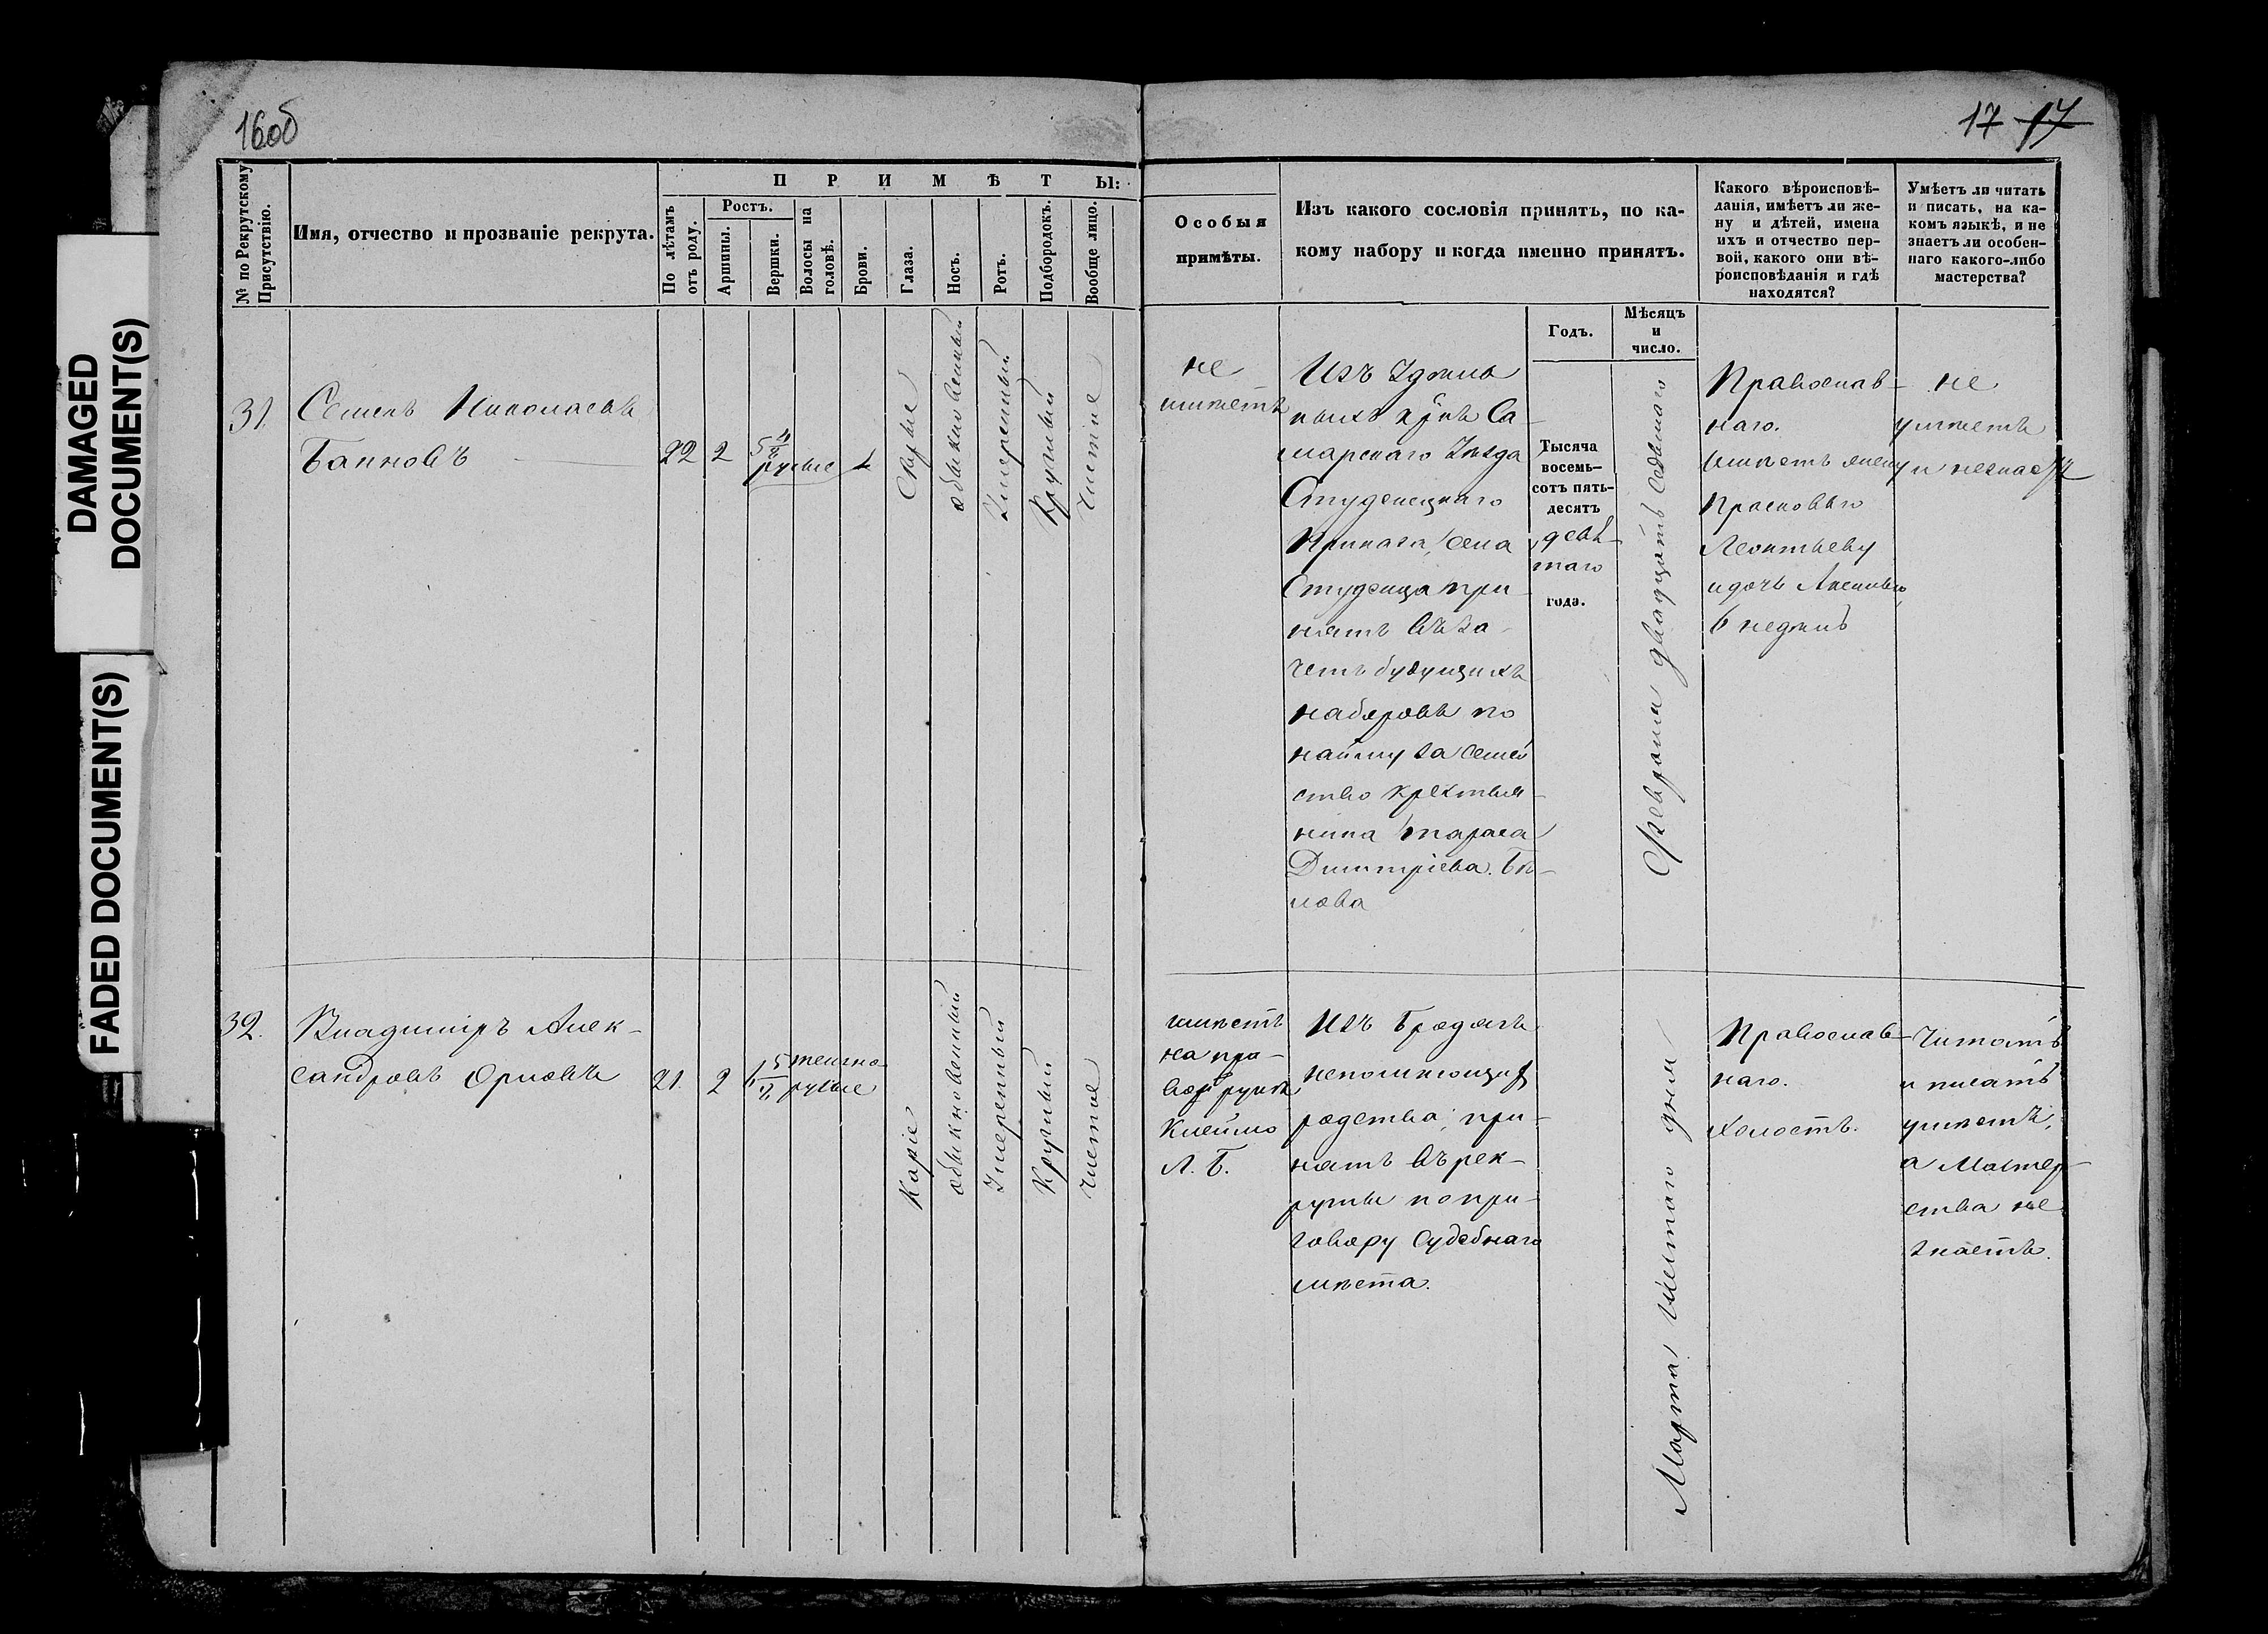 DAMAGED
DOCUMENT(S)
FADED DOCUMENT(S)
16об
17 17
№ по Рекрутскому
Присутствію.
Имя, отчество и прозваніе рекрута.
П Р И М Ѣ Т Ы:
По лѣтамъ
отъ роду.
Ростъ.
Аршины.
Вершки.
Волосы на
головѣ.
Брови.
Глаза.
Носъ.
Ротъ.
Подбородокъ.
Вообще лицо.
Особыя
примѣты.
Изъ какого сословія принятъ, по ка-
кому набору и когда именно принятъ.
Годъ.
Мѣсяцъ
и
число.
Какого вѣроисповѣ-
данія, имѣетъ ли же-
ну и дѣтей, имена
ихъ и отчество пер-
вой, какого они вѣ-
роисповѣданія и гдѣ
находятся?
Умѣетъ ли читать
и писать, на ка-
комъ языкѣ, и не
знаетъ ли особен-
наго какого-либо
мастерства?
31.
Семенъ Николаевъ
22
2
русые
Сѣрые
обыкновенный
Умѣренный
Круглый
Чистое
не
имѣетъ
Изъ Удѣль
ныхъ кр̃нъ Са-
марскаго Уѣзда
Студенецкаго
Приказа, села
Студенца при-
нятъ въ за-
четъ будущихъ
наборовъ по
найму за семей
ство крестья-
нина Тараса
Димитріева. Бѣ-
лова
Тысяча
восемь-
сотъ пять-
десятъ
девя-
таго
года.
Февраля двадцать седьмаго
Православ-
наго.
Имѣетъ жену
Прасковью
Леонтьеву
и дочь Аксинью
6 недѣль
не
умѣетъ
и незнаетъ
32.
Владиміръ Алек-
сандровъ Орловъ
21.
2
темно
русые
Каріе
обыкновенный
Умѣренный
Круглый
чистое
имѣетъ
на пра-
вой рукѣ
Клеймо
Л. Б.
Изъ Бродягъ
непомнющихъ
родства; при-
нятъ въ рек-
руты по при-
говору Судебнаго
мѣста.
Марта шестаго дня
Православ-
наго.
Холостъ.
Читать
и писать
умѣетъ,
а Мастер-
ства не
знаетъ.